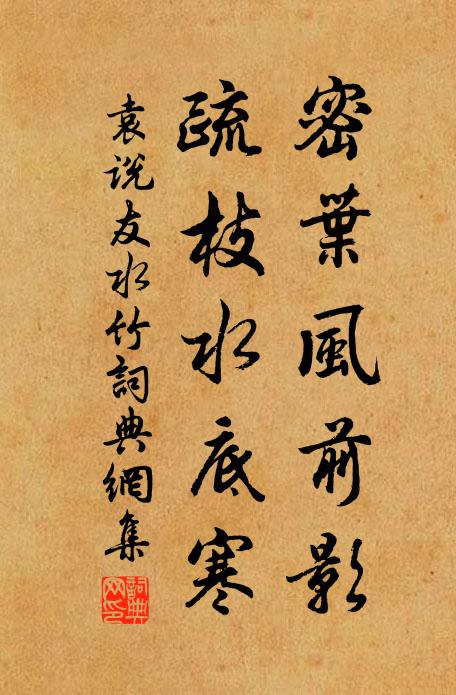 密葉風前影
疏枝水底寒
袁説友水竹詞典網集
詞典
网印